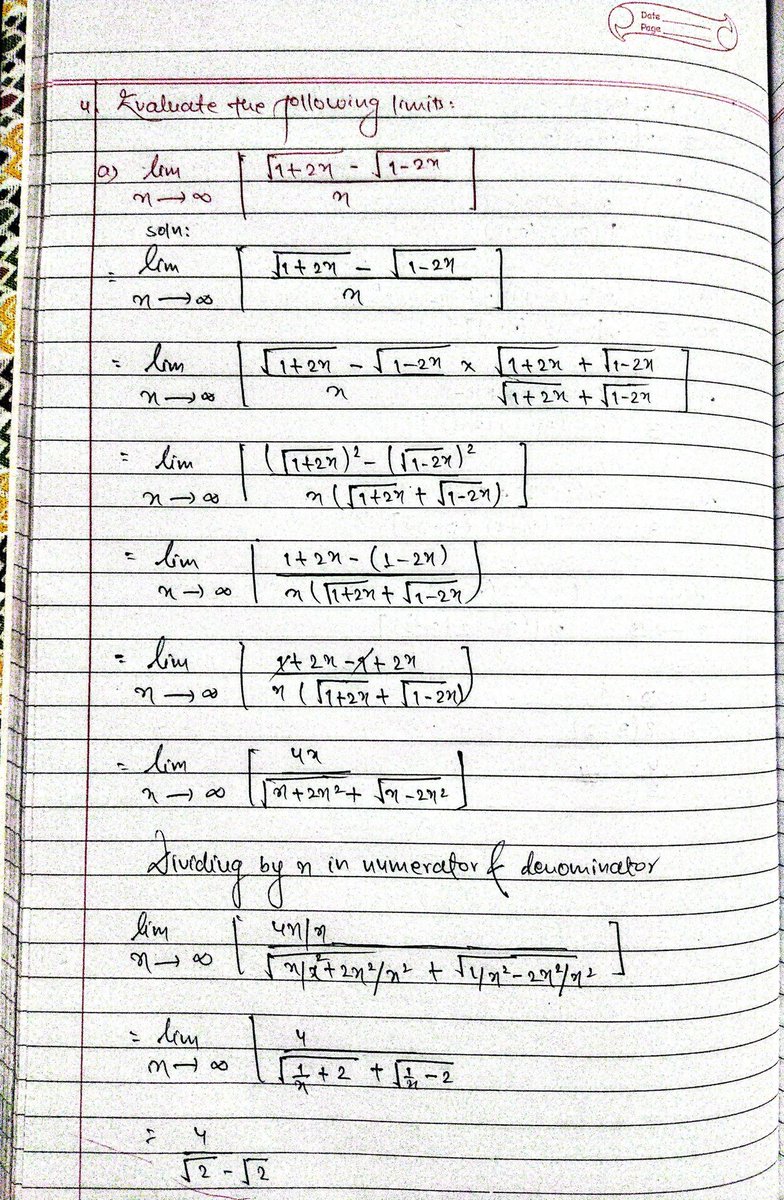 Date
Page
4. Evaluate the following limits:
a) lim n→∞ [ (√(1+2n) - √(1-2n)) / n ]
soln:
= lim n→∞ [ (√(1+2n) - √(1-2n)) / n ]
= lim n→∞ [ (√(1+2n) - √(1-2n)) / n × (√(1+2n) + √(1-2n)) / (√(1+2n) + √(1-2n)) ].
= lim n→∞ [ ((√(1+2n))² - (√(1-2n))²) / n(√(1+2n) + √(1-2n)) ]
= lim n→∞ [ (1+2n-(1-2n)) / n(√(1+2n) + √(1-2n)) ]
= lim n→∞ [ (1+2n-1+2n) / n(√(1+2n) + √(1-2n)) ]
= lim n→∞ [ 4n / (√(n+2n²) + √(n-2n²)) ]
Dividing by n in numerator & denominator
lim n→∞ [ (4n/n) / (√(n/n²+2n²/n²) + √(1/n²-2n²/n²)) ]
= lim n→∞ [ 4 / (√(1/n + 2) + √(1/n - 2))
= 4 / (√2 - √2)